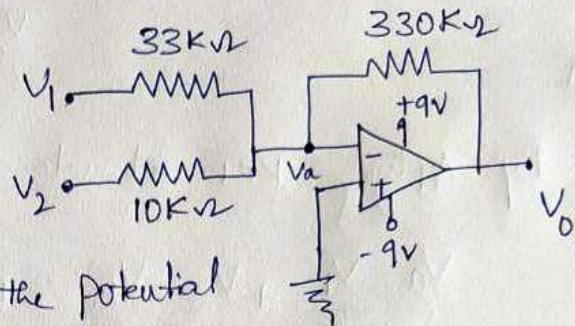 33KΩ
330KΩ
V1
+9V
Va
-
+
V2
10KΩ
V0
-9V
the potential